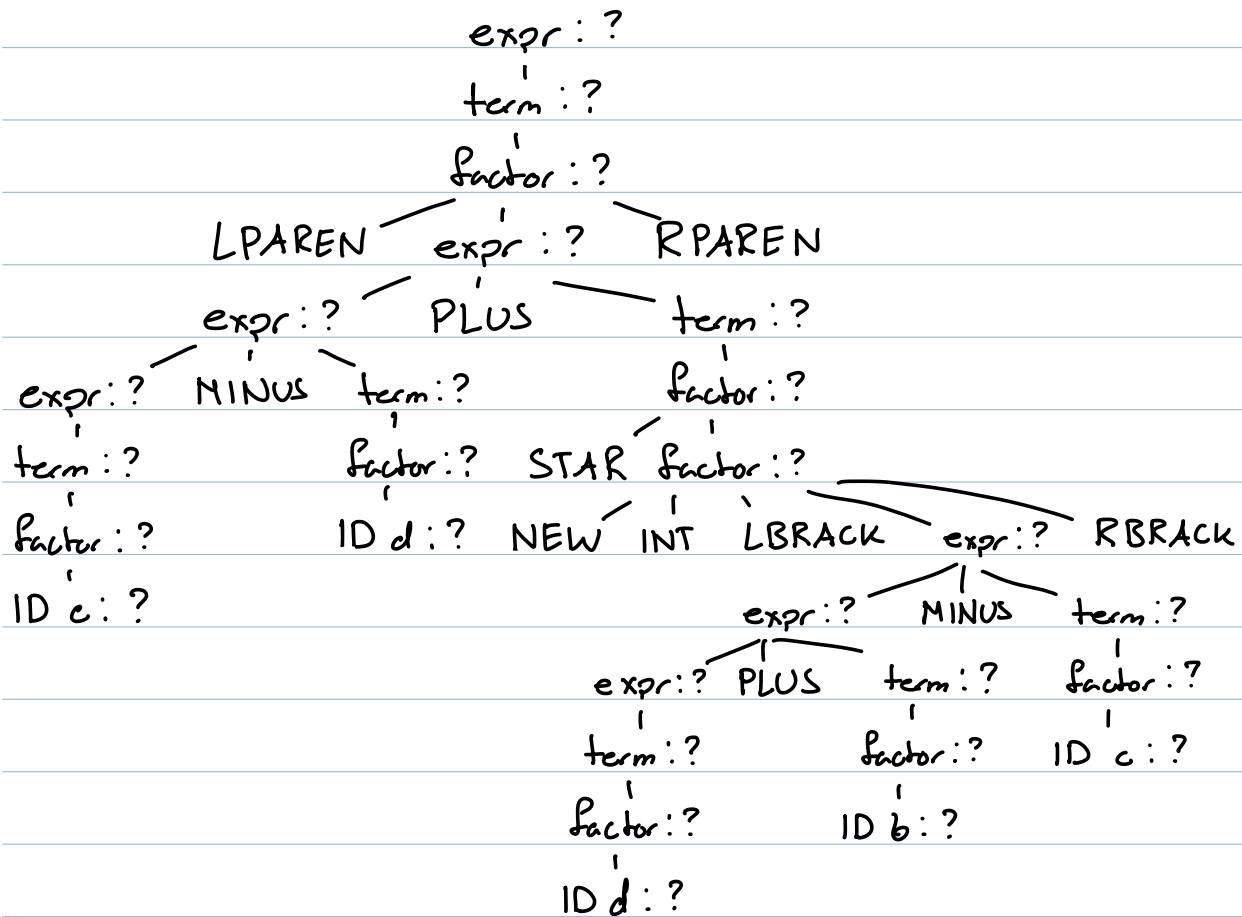 expr : ?
term : ?
factor : ?
LPAREN expr : ? RPAREN
expr : ? PLUS term : ?
expr : ? MINUS term : ? factor : ?
term : ? factor : ? STAR factor : ?
factor : ? ID d : ? NEW INT LBRACK expr : ? RBRACK
ID c : ? expr : ? MINUS term : ?
expr : ? PLUS term : ? factor : ?
term : ? factor : ? ID c : ?
factor : ? ID b : ?
ID d : ?